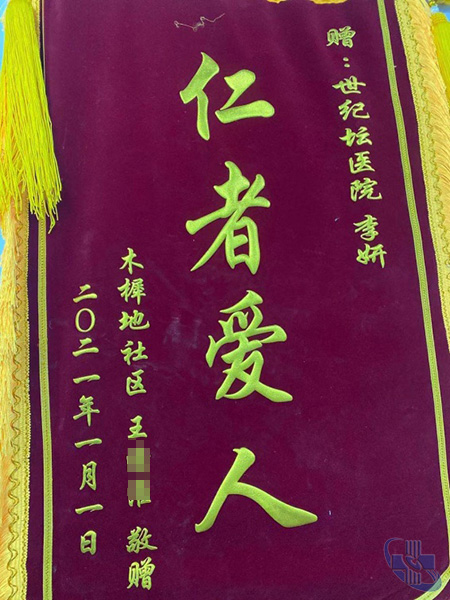 赠：世纪坛医院 李妍
仁者爱人
木樨地社区 王 敬赠
二〇二一年一月一日